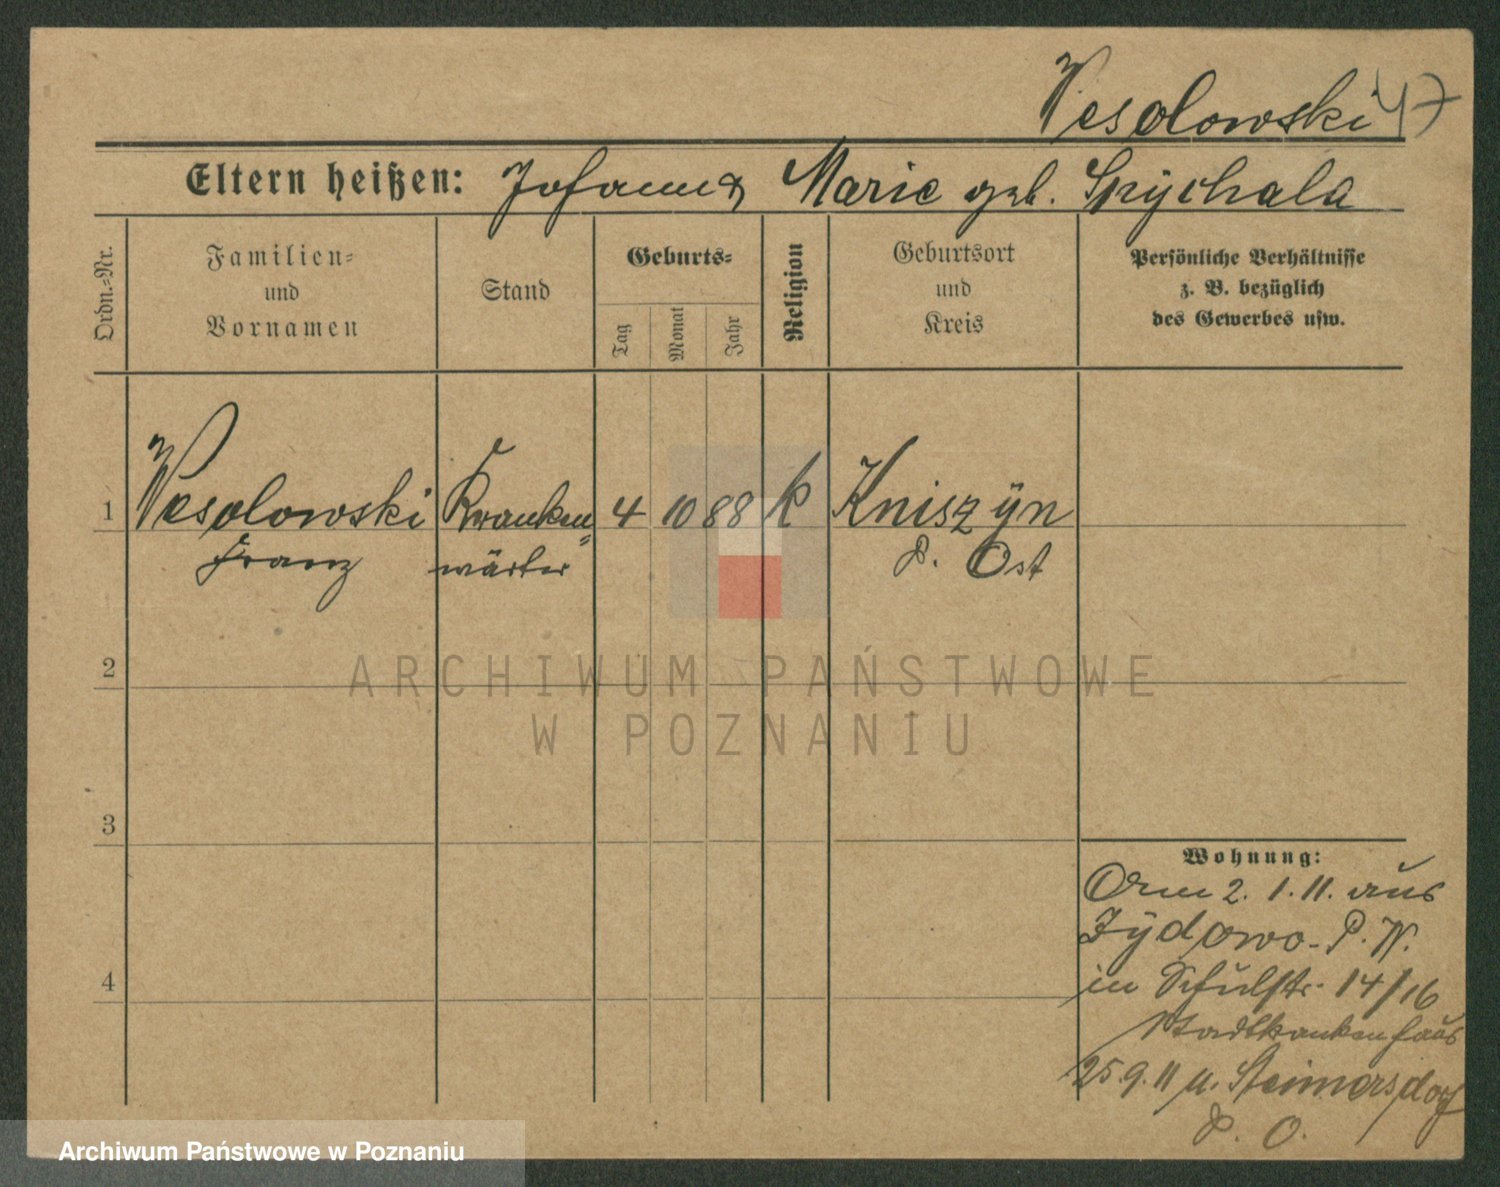 Wesolowski 47
Eltern heißen: Johann & Marie geb. Spÿchala
Ordn.=Nr.
Familien=
und
Vornamen
Stand
Geburts=
Tag
Monat
Jahr
Religion
Geburtsort
und
Kreis
Persönliche Verhältnisse
z. B. bezüglich
des Gewerbes usw.
1 Wesolowski Kranken= 4 10 88 k Kniszÿn
Franz wärter P. Ost
2
3
4
Wohnung:
2. 1. 11. aus
Zÿdowo- P. W.
in Schulstr. 14/16
Stadtkrankenhaus
25.9.11 n.
P. O.
ARCHIWUM PAŃSTWOWE
W POZNANIU
Archiwum Państwowe w Poznaniu